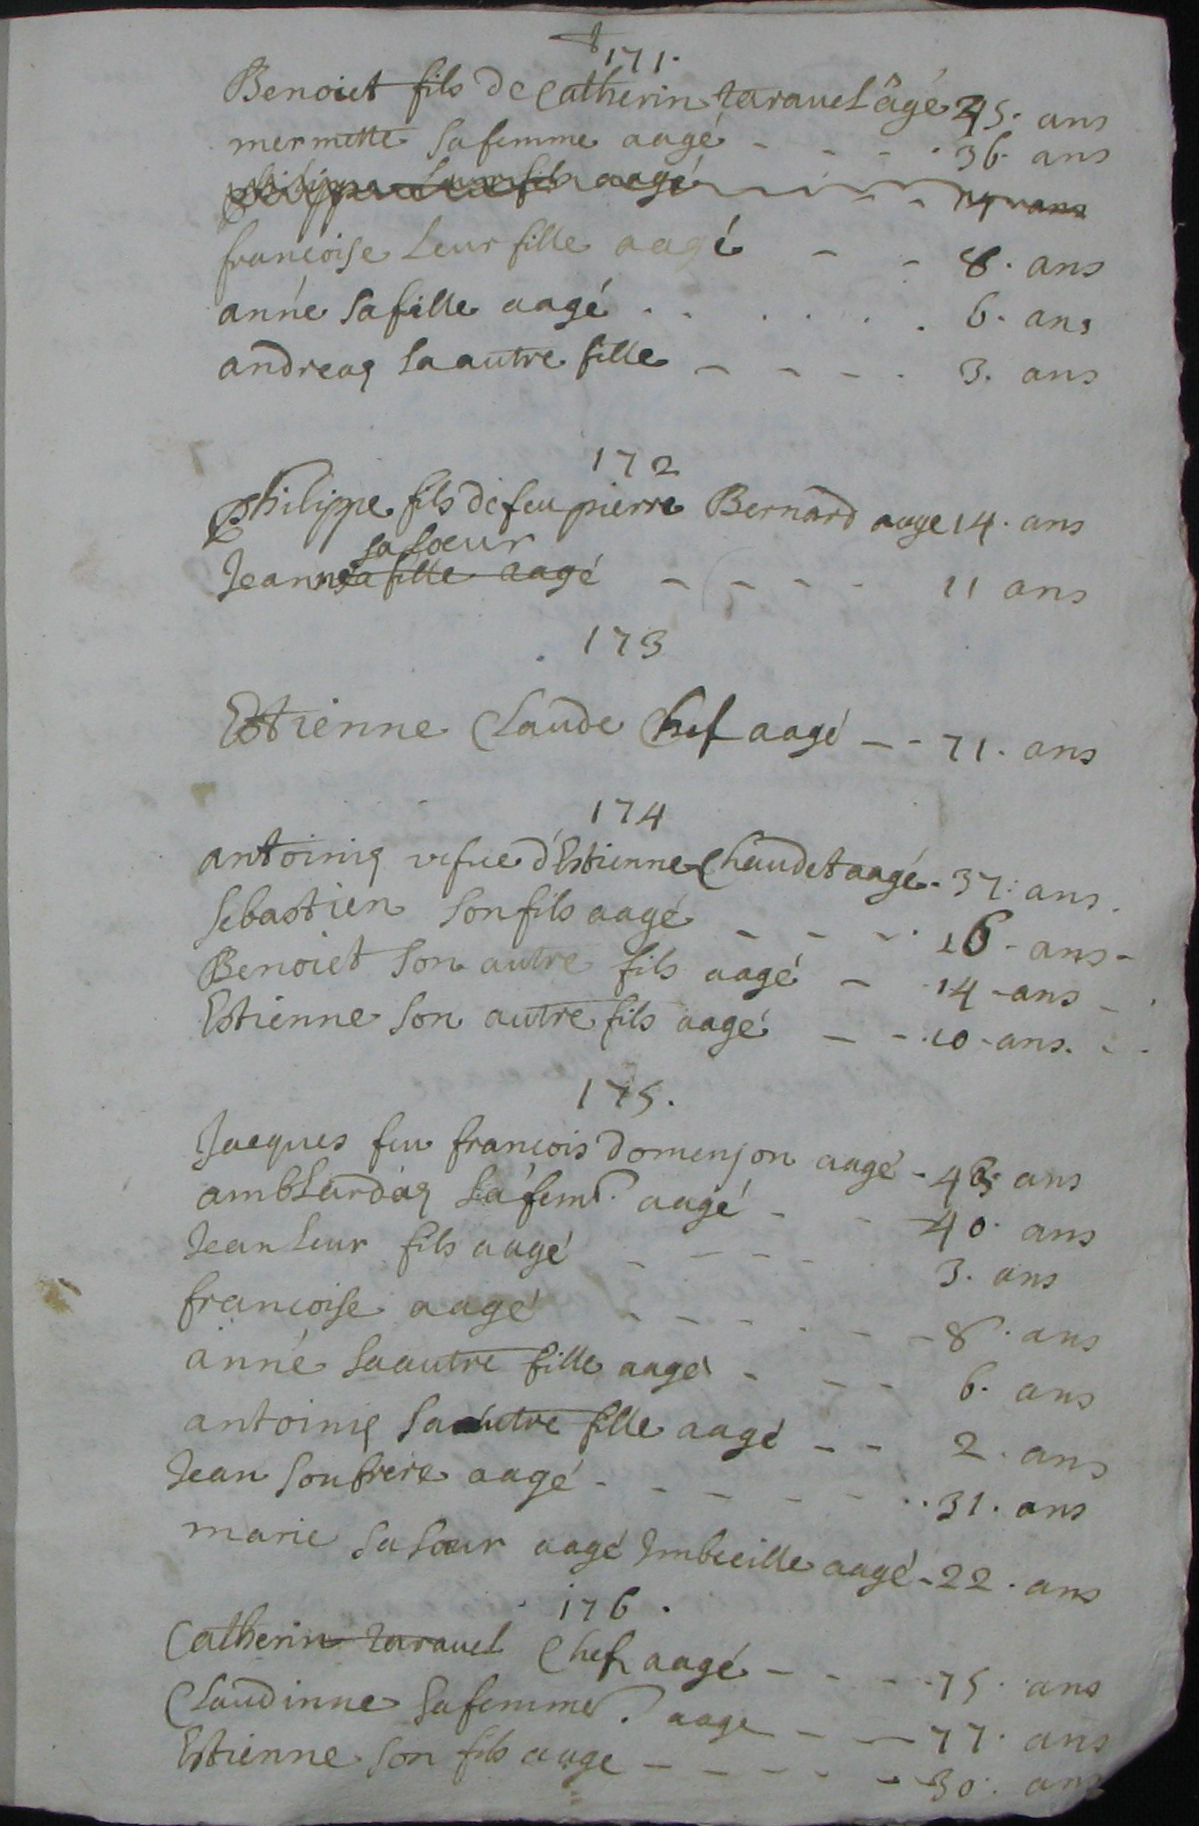 171.
Benoict fils de Catherin taravel âgé 45. ans
mermette sa femme aagé - - - - 36. ans
philippe leur fils aagé - - 14 ans
francoise leur fille aagé - - 8. ans
anné sa fille aagé . . . . . . 6. ans
andreaz sa autre fille - - - - . 3. ans
172
philippe fils de feu pierre Bernard aage 14. ans
sa soeur
Jeanne sa fille aagé - - - - 11 ans
173
Estienne Claude Chef aagé - - 71. ans
174
antoinię vefue d'Estienne Chaudet aagé - 37. ans.
sebastien son fils aagé - - - . 16 - ans -
Benoict son autre fils aagé - 14 - ans -
Estienne son autre fils aagé - - 10 - ans. -
175.
Jacques feu francois domenjon aagé - ans
amblardaz sa fem.e aagé - - 40. ans
Jean leur fils aagé - - - - 3. ans
francoise aagé - - - . - - 8. ans
anné sa autre fille aagé - - - 6. ans
antoinię sa autre fille aagé - - 2. ans
Jean son frere aagé - - - - - . . 31. ans
marie sa soeur aagé Imbecille aagé - 22. ans
176.
Catherin taravel Chef aagé - - - - 75. ans
Claudinne sa femme. aage - - 77. ans
Estienne son fils aage - - - - - 30. ans